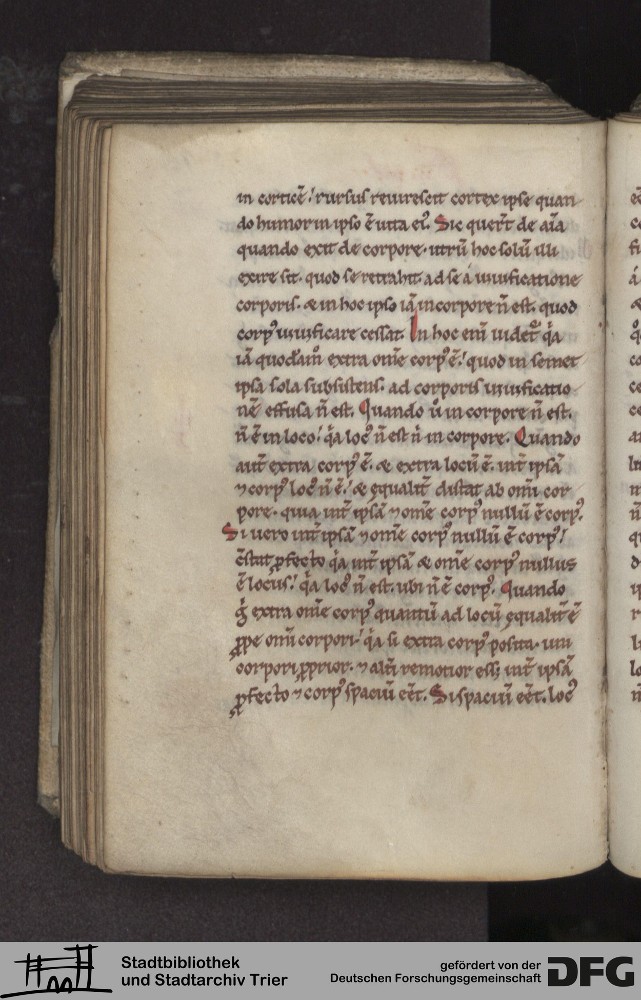 in corticē! rursus reuirescit cortex ipse quan
do humor in ipso ē uita eiꝰ. Sic querit̄ de aīa
quando exit de corpore. utrū hoc solū illi
exire sit. quod se retrahit ad se a uiuificatione
corporis. & in hoc ipso iā in corpore n̄ est. quod
corpꝰ uiuificare cessat. In hoc enī uidet᷑ qͥa
iā quodam̄ extra om̄e corpꝰ ē! quod in semet
ipsa sola subsistens. ad corporis uiuificatio
nē effusa n̄ est. Quando ū in corpore n̄ est.
n̄ ē in loco! qͥa locꝰ n̄ est n̄ in corpore. Quando
aut̄ extra corpꝰ ē. & extra locū ē. int̄ ipsā
⁊ corpꝰ locꝰ n̄ ē! & equalit̄ distat ab om̄i cor
pore. quia int̄ ipsā ⁊ om̄e corpꝰ nullū ē corpꝰ.
Si uero int̄ ipsā ⁊ om̄e corpꝰ nullū ē corpꝰ!
c̄stat ꝓfecto qͥa int̄ ipsā & om̄e corpꝰ nullus
ē locus! qͥa locꝰ n̄ est. ubi n̄ ē corpꝰ. Quando
gͦ extra om̄e corpꝰ quantū ad locū equalit̄ ē
ꝓpe om̄i corpori! qͥa si extra corpꝰ posita. uni
corpori ꝓprior. ⁊ alt̄i remotior ess&; int̄ ipsā
ꝓfecto ⁊ corpꝰ spaciū eēt. Si spaciū eēt. locꝰ
Stadtbibliothek
und Stadtarchiv Trier
gefördert von der
Deutschen Forschungsgemeinschaft
DFG